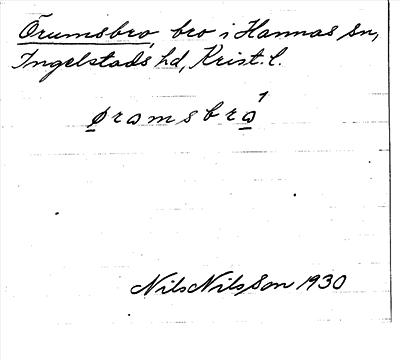 Örumsbro, bro i Hannas sn,
Ingelstads hd, Krist. l.
ørɷmsbrɷ1
Nils Nilsson 1930